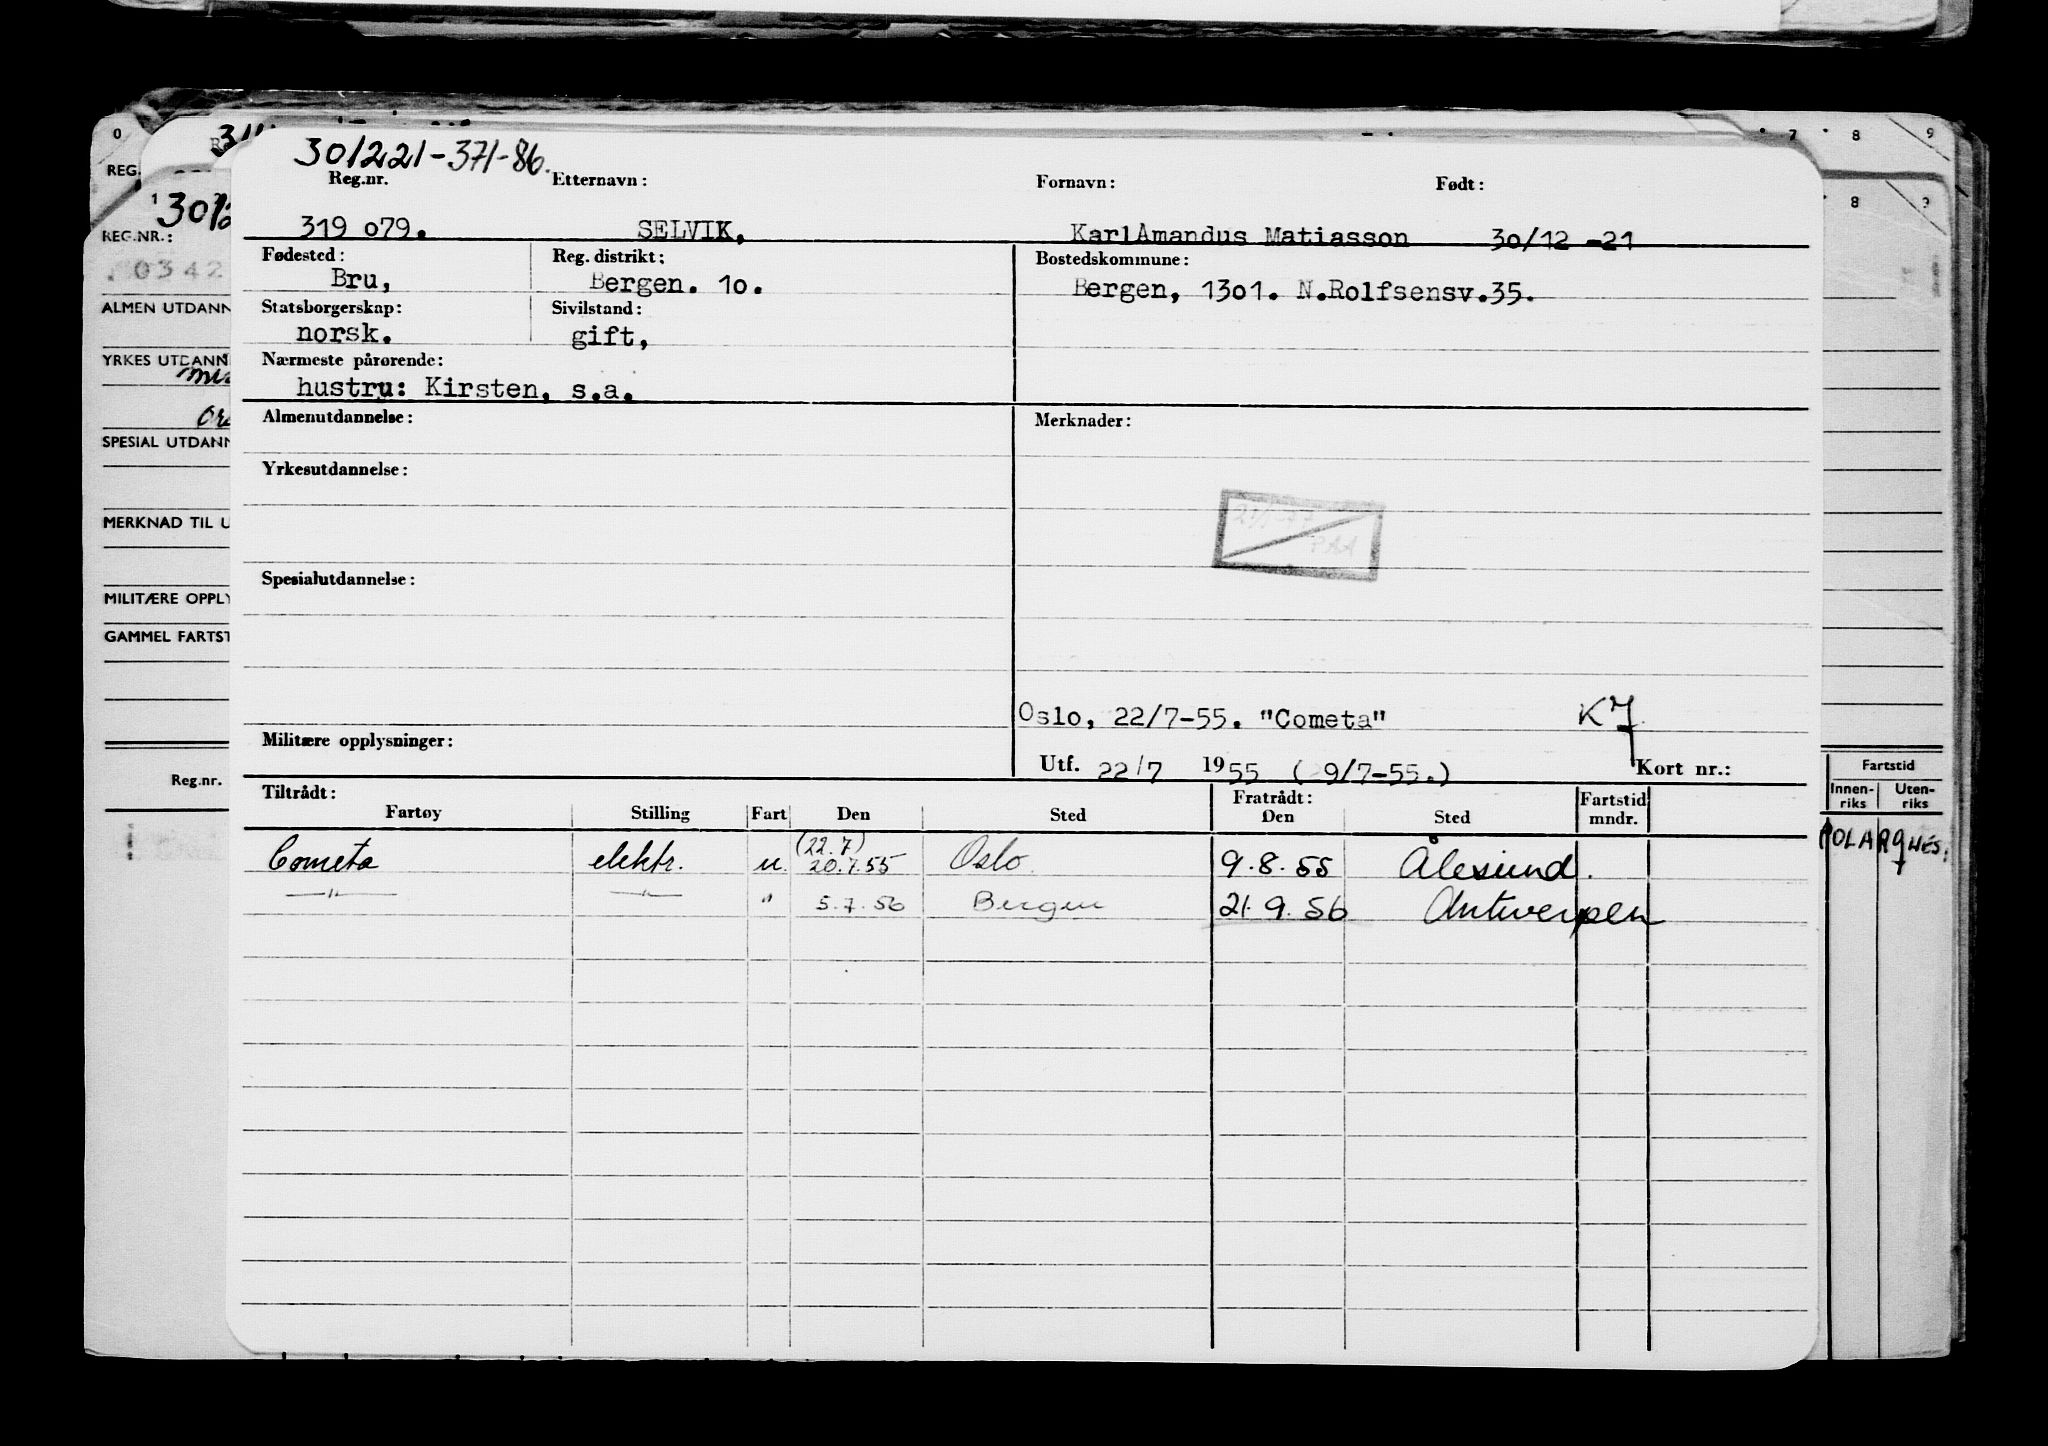 0 7 8 9
REG.
301221-371-86.
Reg.nr. Etternavn: Fornavn: Født:
1 8 9
REG.NR.:
319 o79. SELVIK, KarlAmandus Matiasson 30/12 -21
0342
Fødested: Reg. distrikt: Bostedskommune:
Bru, Bergen. 10. Bergen, 1301. N.Rolfsensv.35.
ALMEN UTDANN
Statsborgerskap: Sivilstand:
norsk. gift,
YRKES UTDANN
Nærmeste pårørende:
hustru: Kirsten, s.a.
Almenutdannelse: Merknader:
SPESIAL UTDANN
Yrkesutdannelse:
MERKNAD TIL U
PAA
Spesialutdannelse:
MILITÆRE OPPLY
GAMMEL FARTST
Oslo, 22/7-55. "Cometa" K7
Militære opplysninger:
Utf. 22/7 1955 ( 9/7-55.) Kort nr.:
Reg.nr. Fartstid
Innen-riks Uten-riks
Tiltrådt: Fratrådt: Fartstid mndr.
Fartøy Stilling Fart Den Sted Den Sted
(22.7)
Cometa elektr. u. 20.7.55 Oslo. 9.8.55 Ålesund.
POLARQUES.
—"— —"— " 5.7.56 Bergen 21.9.56 Antwerpen